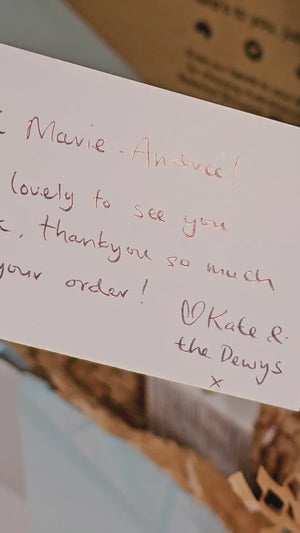 Marie-Andreé!
lovely to see you
, thankyou so much
your order!
♡Kate &
the Dewys
x